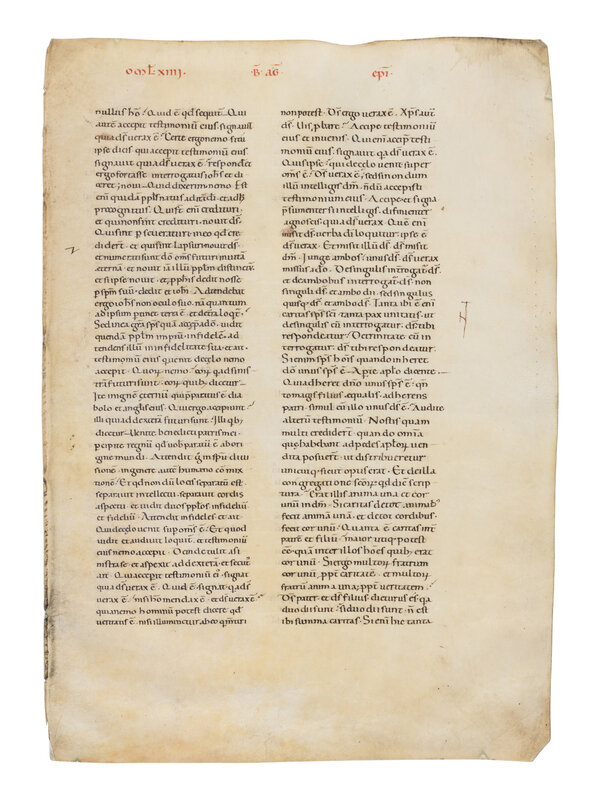 OML̄ XIIII · B̄ · AḠ · EPĪ ·
nullus hō? Quid ē qd̄ sequit̄. Qui
autē accepit testimoniū eius, signauit
quia dſ̄ uerax ē? Certe ergo nemo ſi tu
ipse dicis qui accepit testimoniū eius
signauit quia dſ̄ uerax ē? respondeт
ergo fortasse interrogatus ioħs et di
ceret; noui · Quid dixerim nemo · Est
enī quidā ppl̄s natus ad irā dī · et ad h̄
precognitus · Qui sīt enī credituri ·
et qui non sint credituri · nouit dſ̄ ·
Qui sint pseueraturi in eo qd̄ cre
diderī · et qui sint lapsuri nouit dſ̄ ·
et numerati sunt dō om̄s futuri in uitā
et̄ernā · et nouit iā illū pplm̄ distinctū ·
et si ipse nouit · et p̄phis dedit nosse
p sp̄m suū · dedit et ioħi · Attendebat
ergo ioħs non oculo suo · nā quantum
ad ipsum puluis terra ē · et de terra loq̄t̄ ·
Sed in ea gr̄a sp̄s quā accep̄ a dō · uidit
quendā pplm impiū · infidelē · ad
tendens illū in infidelitate sua · et ait ·
testimoniū eius qui uenit de celo nemo
accepit ·
Ite in ignē eternū qui paratus ē dia
bolo et angl̄is eius · Qui ergo accipiunt
illi qui ad dexterā futuri sunt · Illi qb;
dicetur · Uenite benedicti patris mei
pcipite regnū qd̄ uob paratū ē ab ori
gine mundi · Attendit ḡ in sp̄u diui
sionē · in genere autē humano cō mix
tionē · Et qd̄ non dū locis separatū est
separauit intellectu · separauit cordis
aspectu · et uidit duos pplos fideliū
et infideliū · Attendit infideles et ait ·
Qui de celo uenit sup om̄s ē · Et quod
uidit et audiuit loquit̄ · et testimoniū
eius nemo accepit ·
nistra se · et aspexit ad dexterā · et secut̄
ait · Qui accepit testimoniū eī · signat
quia dſ̄ uerax ē · Quid ē · signat̄ qa dſ̄
uerax ē · nisi hō mendax ē · et dſ̄ uerax ē
quia nemo hominū potest dicere qd̄
ueritatis ē · nisi illuminetur ab eo q mtiri
non potest · Dſ̄ ergo uerax · Xp̄s aut̄
dſ̄ · Uis p̄bare? Accipe testimoniū
eius et inuenis · Qui enī accep̄ testi
moniū eius · signauit qa dſ̄ uerax ē ·
Quis ipse? qui de celo uenit super
om̄s ē? Dſ̄ uerax ē? sed si non dum
illū intelligis dm̄ · n̄dū accepisti
testimonium eius · Accipe et signa ·
p̄sumenter si intelligis · difinienter
agnoscis quia dſ̄ uerax ē · Quē enī
misit dſ̄ · uerba dī loquitur · ipse ē
dſ̄ uerax · Et misit illū dſ̄ · dſ̄ misit
dm̄ · Iunge ambos? unus dſ̄ · dſ̄ uerax
missus a dō · De singulis introgat̄ · dſ̄ ·
et de ambobus interrogat̄ · dſ̄ · non
singuli dſ̄ · et ambo dii · sed singulus
quisq; dſ̄ · et ambo dſ̄ · Tanta ibi ē enī
caritas sp̄s sc̄i · tanta pax unitatis · ut
de singulis cū interrogatur · dſ̄ · tibi
respondeatur? De trinitate cū in
terrogatur · dſ̄ tibi respondeatur.
Si enim sp̄s hōis quando inheret
dō · unus sp̄s ē · Aꝑte aplo dicente ·
Qui adheret dn̄o unus sp̄s ē · qn̄
to magis filius equalis · adherens
patri · simul cū illo unus dſ̄ ē · Audite
alterū testimoniū · Nostis quam
multi crediderī · quando om̄ia
que habebant ad pedes aplorū uen
dita posuerī · ut distribueretur
unicuiq; sicut opus erat · Et de illa
congregatione scōrum qd̄ dic̄ scrip
tura? Erat illis anima una et cor
unū in dn̄o · Si caritas de tot animab;
fecit animā unā · et de tot cordibus
fecit cor unū · Quanta ē caritas int̄
patrē et filiū? maior utiq; potest
ēē · quā inter illos hōes quib; erat
cor unū · Si ergo multorū fratrum
cor unū, ppt̄ caritatē · et multorū
fratrū anima una; ppt̄ ueritatem
Dſ̄ pater et dſ̄ filius dicturus es qa
duo dii sunt? si duo dii sunt · n̄ est
ibi summa caritas · Si enī hic tanta